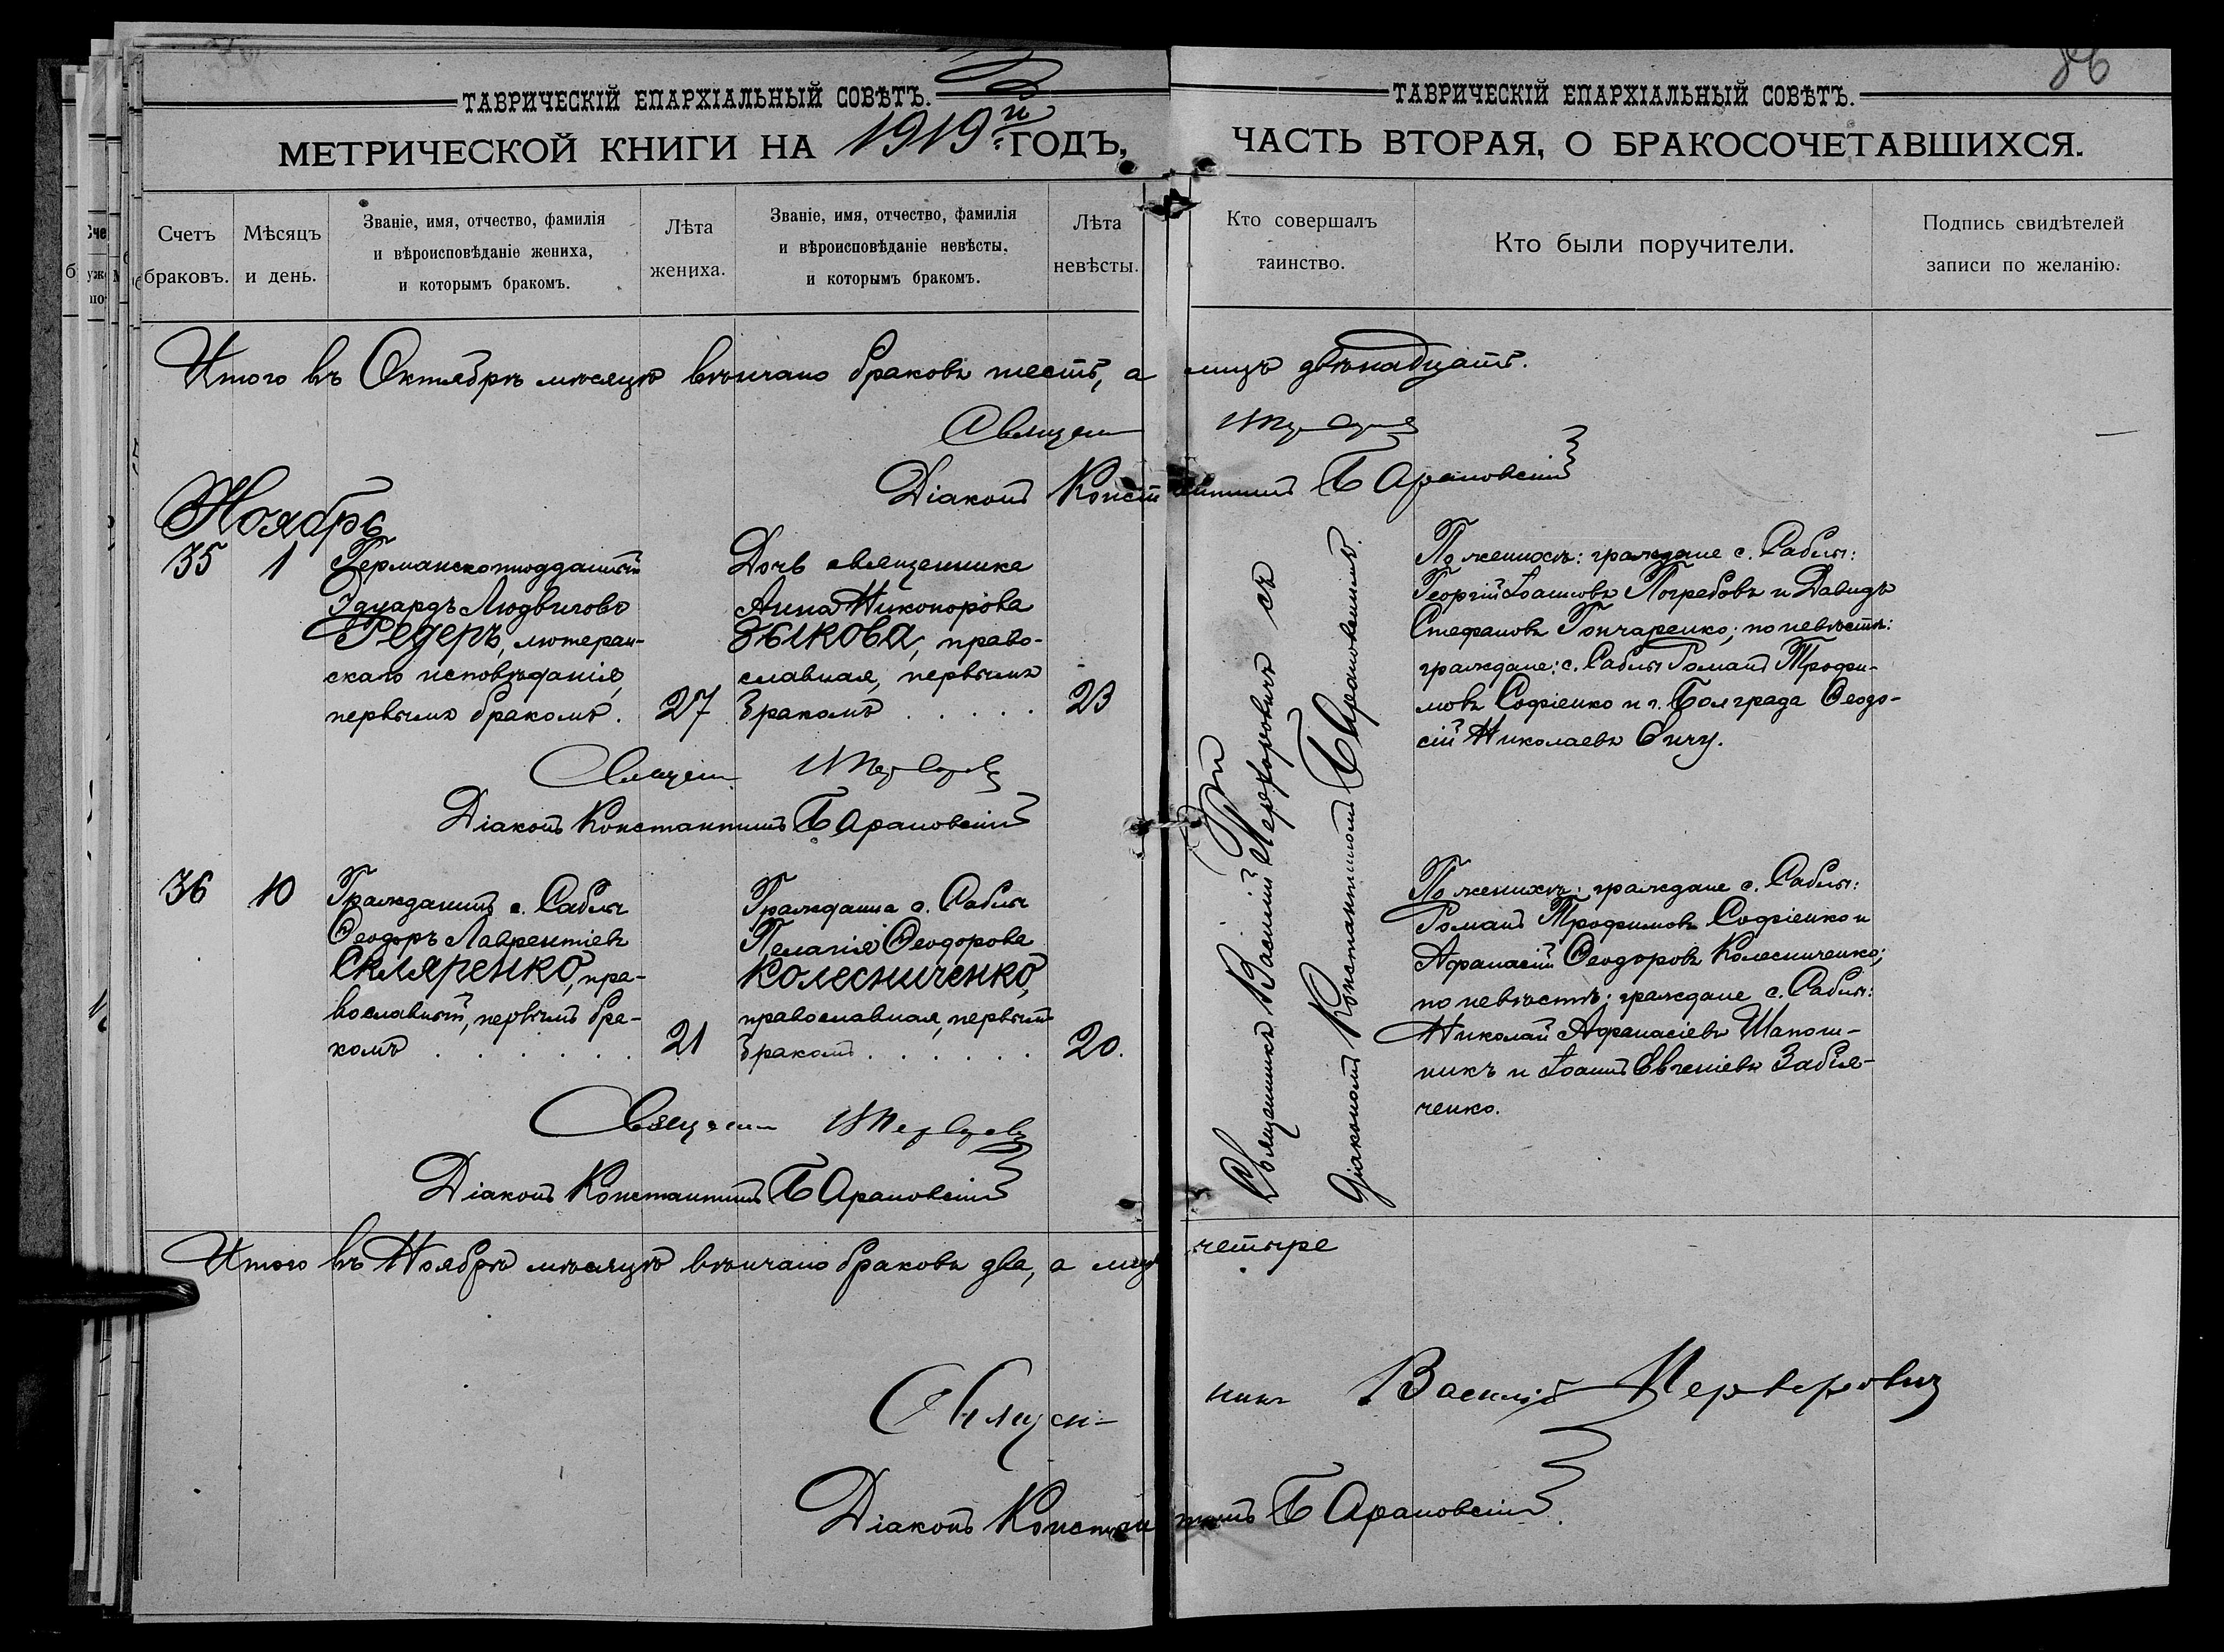 86
ТАВРИЧЕСКІЙ ЕПАРХІАЛЬНЫЙ СОВѢТЪ.
ТАВРИЧЕСКІЙ ЕПАРХІАЛЬНЫЙ СОВѢТЪ.
МЕТРИЧЕСКОЙ КНИГИ НА 1919й ГОДЪ,
ЧАСТЬ ВТОРАЯ, О БРАКОСОЧЕТАВШИХСЯ.
Счетъ
браковъ.
Мѣсяцъ
и день.
Званіе, имя, отчество, фамилія
и вѣроисповѣданіе жениха,
и которымъ бракомъ.
Лѣта
жениха.
Званіе, имя, отчество, фамилія
и вѣроисповѣданіе невѣсты,
и которымъ бракомъ.
Лѣта
невѣсты.
Кто совершалъ
таинство.
Кто были поручители.
Подпись свидѣтелей
записи по желанію.
Итого въ Октябрѣ мѣсяцѣ вѣнчано браковъ шесть, а лицъ двѣнадцать.
Священ
Діаконъ Константинъ Барановскій
Ноябрь
35
1
Германскоподданный
Эдуардъ Людвиговъ
Редеръ, лютеран-
скаго исповѣданія,
первымъ бракомъ.
27
Дочь священника
Анна Никонорова
Зыкова, право-
славная, первымъ
бракомъ
23
Священникъ Василій Мерхоровичъ съ
Діакономъ Константиномъ Барановскимъ.
По женихѣ: граждане с. Саблы:
Георгій Іоанновъ Погребовъ и Давидъ
Стефановъ Гончаренко; по невѣстѣ:
граждане: с. Саблы Романъ Трофи-
мовъ Софіенко и г. Болграда Ѳеодо-
сій Николаевъ Енчу.
Священ
Діаконъ Константинъ Барановскій
36
10
Гражданинъ с. Саблы
Ѳеодоръ Лаврентіевъ
Скляренко, пра-
вославный, первымъ бра-
комъ
21
Гражданка с. Саблы
Пелагія Ѳеодорова
Колесниченко,
православная, первымъ
бракомъ
20.
По женихѣ: граждане с. Саблы:
Романъ Трофимовъ Софіенко и
Афанасій Ѳеодоровъ Колесниченко;
по невѣстѣ: граждане с. Саблы:
Николай Афанасіевъ Шапош-
никъ и Іоаннъ Евгеніевъ Забія-
ченко.
Священ
Діаконъ Константинъ Барановскій
Итого въ Ноябрѣ мѣсяцѣ вѣнчано браковъ два, а лицъ четыре
Священ-никъ Василій
Діаконъ Константинъ Барановскій